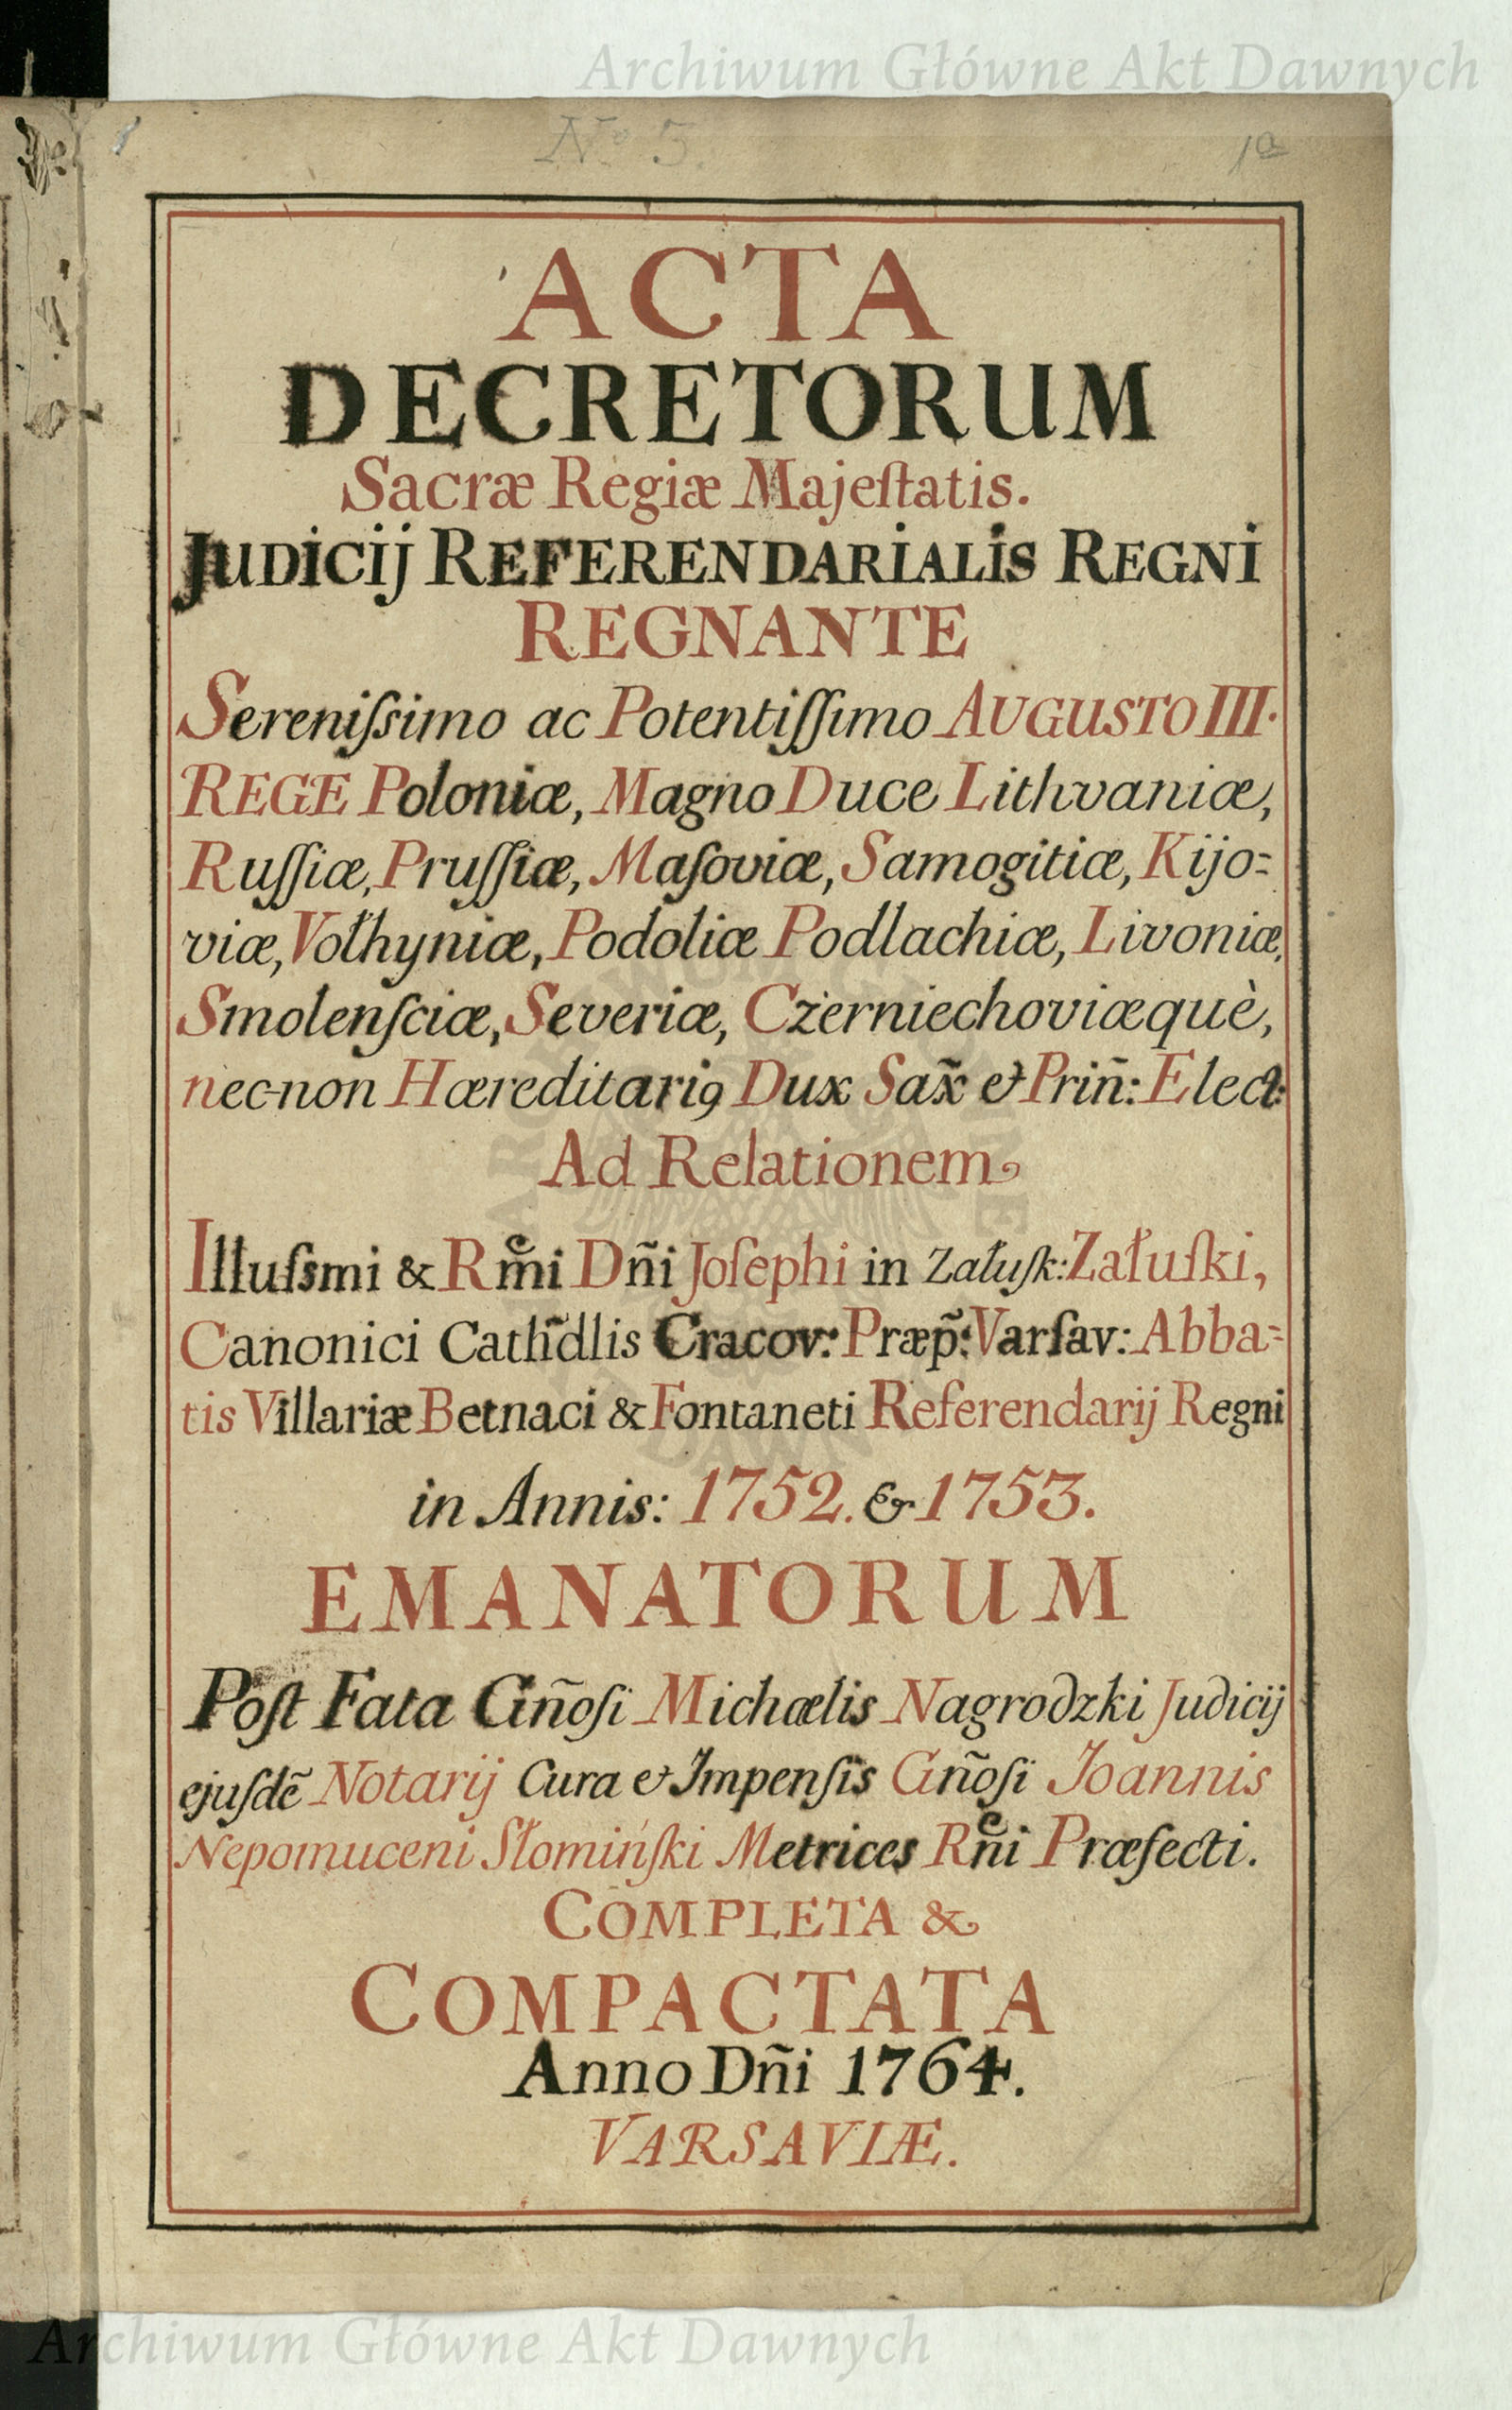 Archiwum Główne Akt Dawnych
No 5.
1a
ACTA
DECRETORUM
Sacræ Regiæ Majeſtatis.
JUDICIJ REFERENDARIALIS REGNI
REGNANTE
Sereniſsimo ac Potentiſſimo AUGUSTO III.
REGE Poloniæ, Magno Duce Lithvaniæ,
Ruſſiæ, Pruſſiæ, Maſoviæ, Samogitiæ, Kijo=
viæ, Volhyniæ, Podoliæ Podlachiæ, Livoniæ,
Smolenſciæ, Severiæ, Czerniechoviæquè,
nec-non Hæreditariꝯ Dux Sax̃ et Prin̄: Elect:
Ad Relationem
Illuſsmi & Rm̃i Dñi Joſephi in Załuſk: Załuſki,
Canonici Cath̃dlis Cracov: Præp̃: Varſav: Abba=
tis Villariæ Betnaci & Fontaneti Referendarij Regni
in Annis: 1752. & 1753.
EMANATORUM
Poſt Fata Gñoſi Michælis Nagrodzki Judicij
ejuſdē Notarij Cura et Impenſis Gñoſi Joannis
Nepomuceni Słomińſki Metrices Rñi Præfecti.
COMPLETA &
COMPACTATA
Anno Dñi 1764.
VARSAVIÆ.
Archiwum Główne Akt Dawnych